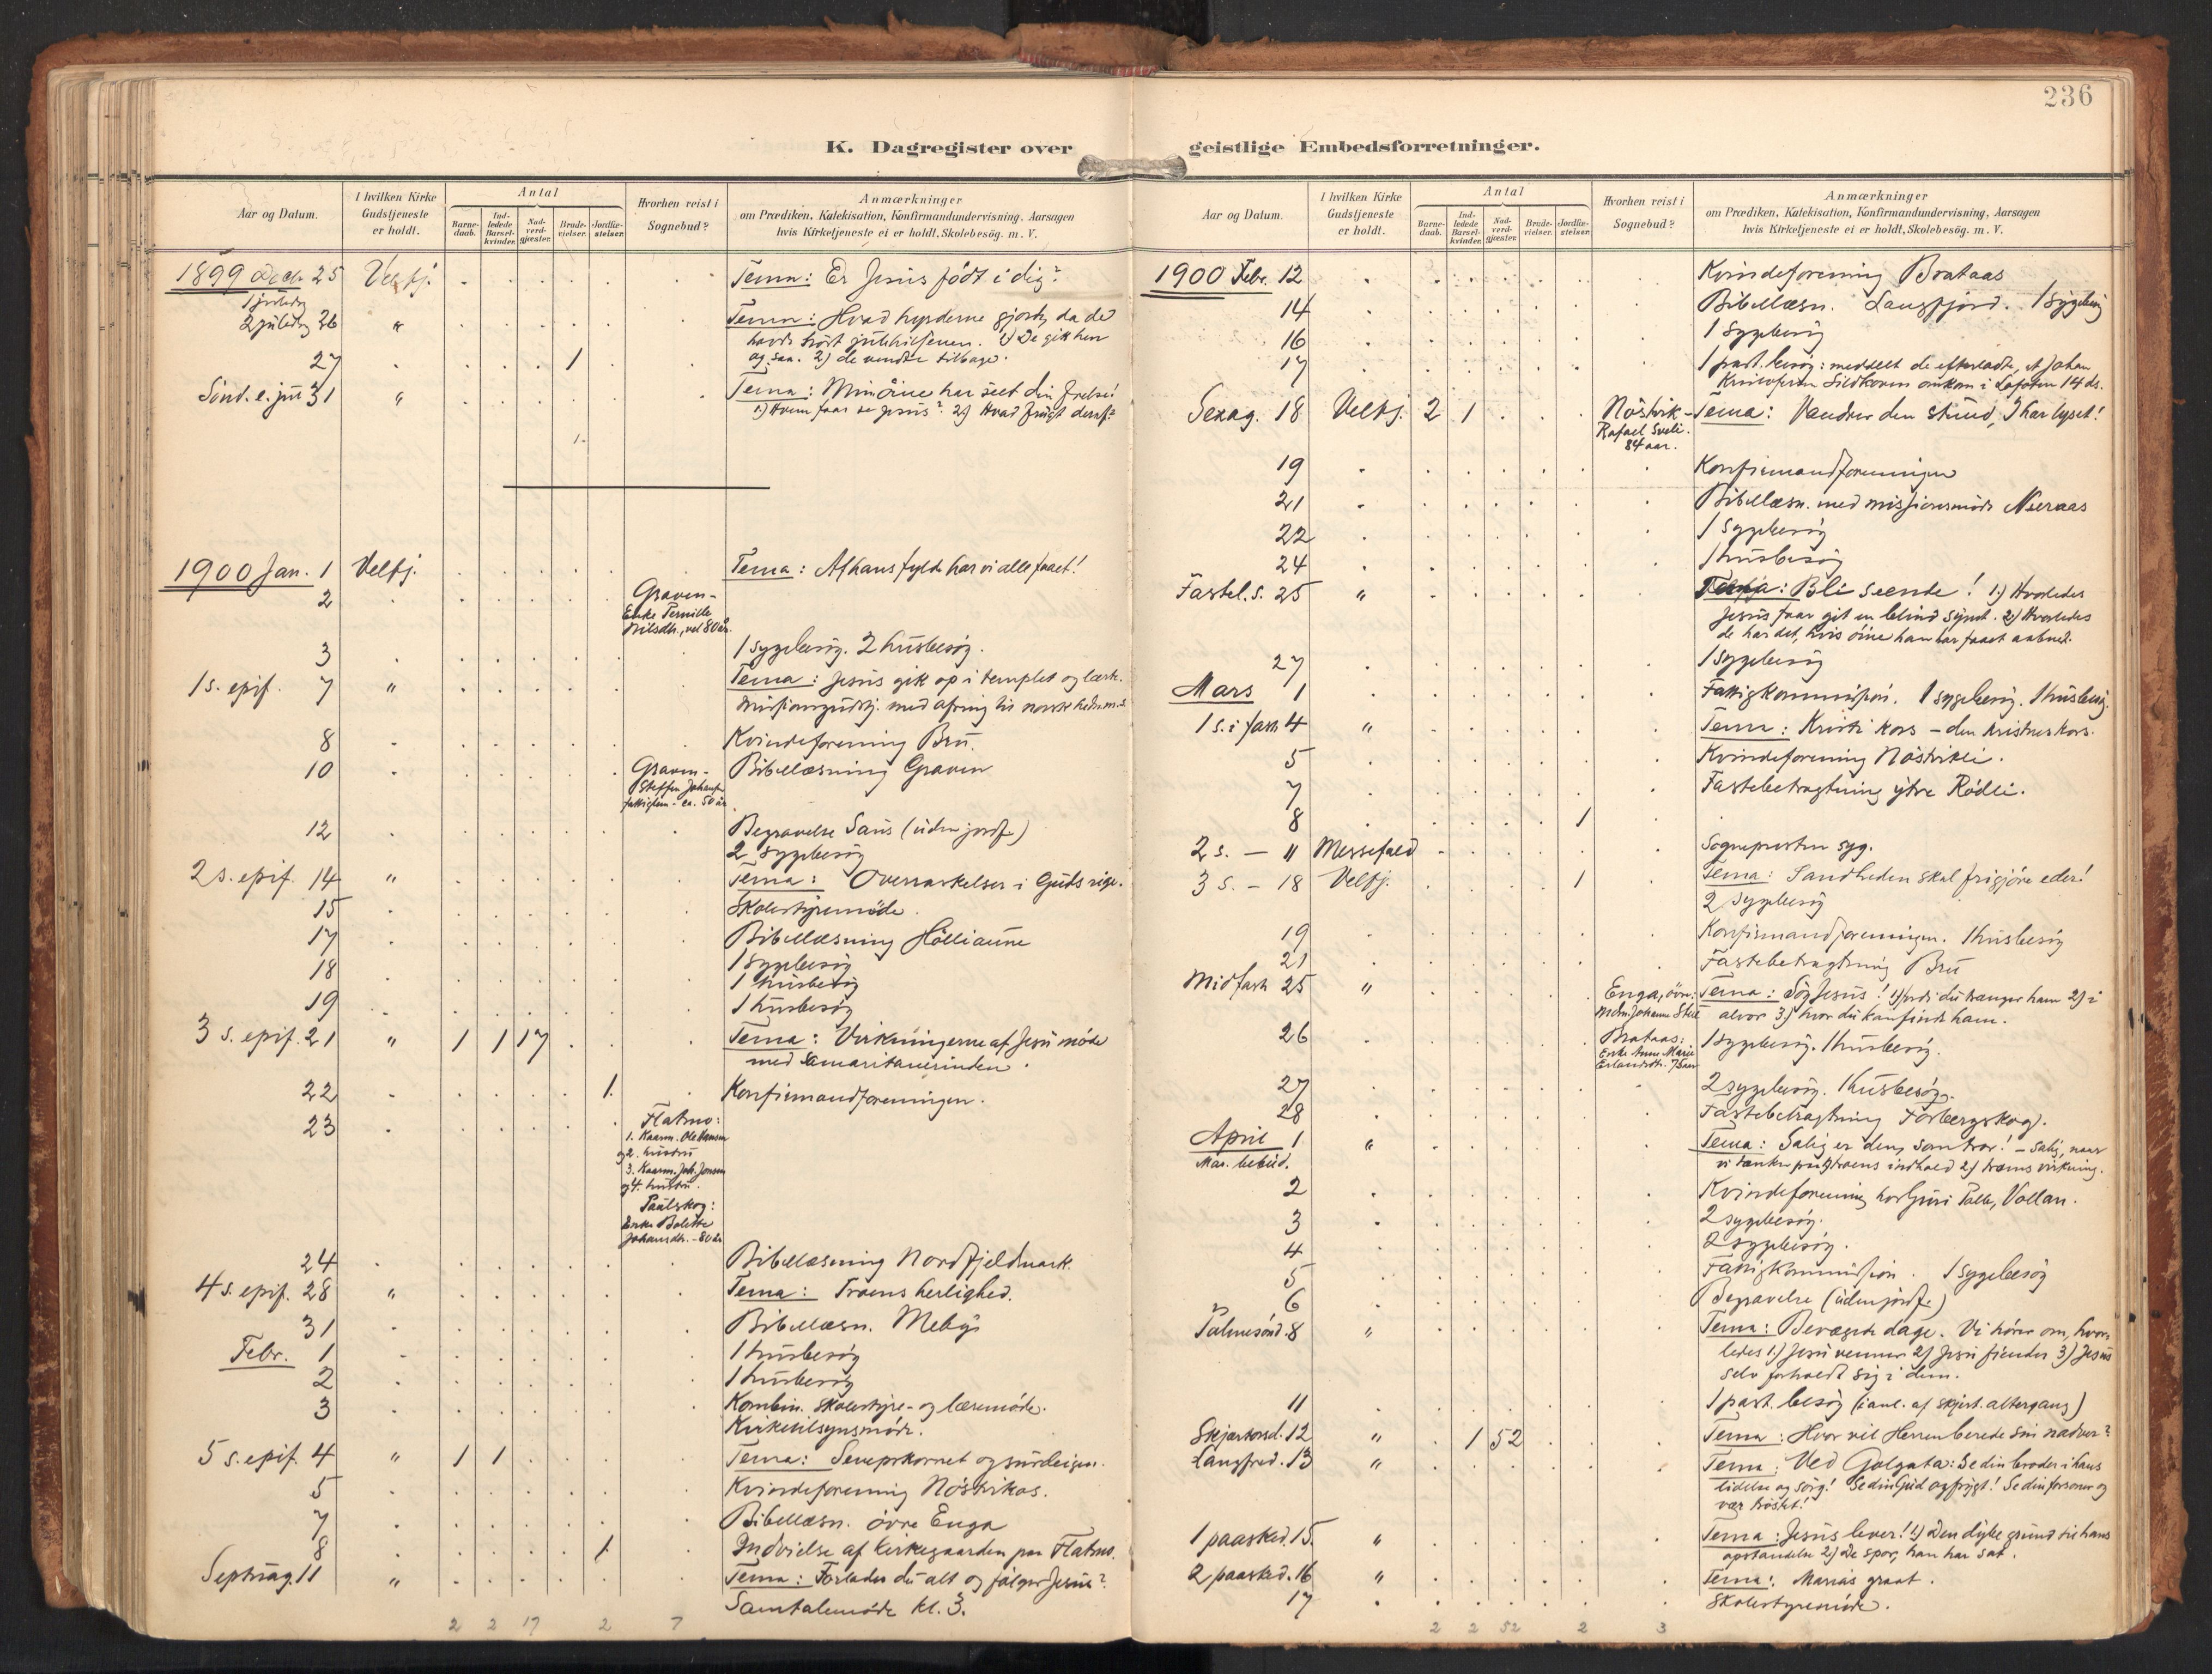 236
K. Dagregister over geistlige Embedsforretninger.
Aar og Datum.
I hvilken Kirke Gudstjeneste er holdt.
Antal
Barne-daab.
Ind-ledede Barsel-kvinder.
Nad-verd-gjæster.
Brude-vielser.
Jordfæ-stelser.
Hvorhen reist i Sognebud?
Anmærkninger
om Prædiken, Katekisation, Konfirmandundervisning, Aarsagen
hvis Kirketjeneste ei er holdt, Skolebesøg. m. V.
1899 Decb. 25 Velfj. Tema: Er Jesus født i dig?
1 juledag
2 juledag 26 " Tema: Hvad hyrderne gjorde, da de
havde hørt julehilsenen. 1) De gik hen
27 1 og saa. 2) de vendte tilbage.
Sønd. e. jul 31 " Tema: Mine øine har seet din frelse!
1) Hvem faar se Jesus? 2) Hvad frugt deraf?
1.
1900 Jan. 1 Velfj. Tema: Af hans fylde har vi alle faaet!
2 Graven-
Enke Pernille
Nilsdtr., vel 80 år.
3 1 sygebesøg. 2 husbesøg.
1 s. epif. 7 " Tema: Jesus gik op i templet og lærte.
Missionsgudstj. med ofring til norske hedn.m.s.
8 Kvindeforening Bru.
10 Graven- Bibellæsning Graven
Steffen
fattiglem - ca. 50 år
12 Begravelse Saus (uden jordf.)
2 sygebesøg
2 s. epif. 14 " Tema: Overraskelser i Guds rige.
15 Skolestyremøde.
17 Bibellæsning Hølliaune
18 1 sygebesøg
1 husbesøg
19 1 husbesøg
3 s. epif. 21 " 1 1 17 Tema: Virkningerne af Jesu møde
med Samaritanerinden.
22 1. Konfirmandforeningen.
23 Flatmo:
1. Kaarm. Ole Hansen
og 2. hustru
3. Kaarm. Joh. Jonsen
og 4. hustru.
Paulskog:
Enke Bolette
Johansdtr. - 80 år
24 Bibellæsning Nordfjeldmark.
4 s. epif. 28 " Tema: Troens herlighed.
31 Bibellæsn. Mebys
Febr. 1 1 husbesøg
2 1 husbesøg
3 Kombin. skolestyre- og læremøde.
Kirketilsynsmøde.
5 s. epif. 4 " 1 1 Tema: Senepskornet og surdeigen.
5 Kvindeforening Nøstvikas.
7 Bibellæsn. øvre Enga
8 1 Indvielse af kirkegaarden paa Flatmo.
Septuag. 11 " Tema: Forlader du alt og følger Jesus?
Samtalemøde kl. 3.
2 2 17 2 7
Aar og Datum.
I hvilken Kirke Gudstjeneste er holdt.
Antal
Barne-daab.
Ind-ledede Barsel-kvinder.
Nad-verd-gjæster.
Brude-vielser.
Jordfæ-stelser.
Hvorhen reist i Sognebud?
Anmærkninger
om Prædiken, Katekisation, Konfirmandundervisning, Aarsagen
hvis Kirketjeneste ei er holdt, Skolebesøg. m. V.
1900 Febr. 12 Kvindeforening Brataas
14 Bibellæsn. Langfjord. 1 sygebesøg
16 1 sygebesøg
17 1 past. besøg: meddelt de efterladte, at Johan
omkom i Lofoten 14 ds.
Sexag. 18 Velfj. 2 1 Nøstvik- Tema: Vandrer den stund, I har lyset!
Rafael
84 aar.
19 Konfirmandforeningen
21 Bibellæsn. med missionsmøde
22 1 sygebesøg
24 1 husbesøg
Fastel. s. 25 " Tema: Bli seende! 1) Hvorledes
Jesus faar git en blind synet. 2) Hvorledes
de har det, hvis øine han har faaet aabnet.
27 1 sygebesøg
Mars 1 Fattigkommission. 1 sygebesøg. 1 husbesøg.
1 s. i faste 4 " Tema: Kristi kors - den kristnes kors.
5 Kvindeforening Nøstvikli.
7 Fastebetragtning ytre Rødli.
8 1
2 s. - 11 Messefald Sognepresten syg.
3 s. - 18 Velfj. 1 Tema: Sandheden skal frigjøre eder!
2 sygebesøg
19 Konfirmandforeningen. 1 husbesøg
21 Fastebetragtning Bru
Midfaste 25 " Enga, øvre: Tema: Søg Jesus! 1) fordi du trænger ham 2) i
alvor 3) hvor du kan finde ham.
26 Brataas: 1 sygebesøg. 1 husbesøg.
Enke Anne Marie
Erlandsdtr. 75 aar
27 2 sygebesøg. 1 husbesøg.
28 Fastebetragtning Forbergskog.
April 1 " Tema: Salig er den, som tror! - Salig, naar
Mar. bebud. vi tænker paa 1) troens indhold 2) troens virkning.
2 Kvindeforening hos Guri Pall., Vollan.
3 2 sygebesøg.
4 2 sygebesøg.
5 Fattigkommission. 1 sygebesøg
6 Begravelse (uden jordf.)
Palmesønd. 8 " Tema: Bevægede dage. Vi hører om, hvor-
ledes 1) Jesu venner 2) Jesu fiender 3) Jesus
selv forholdt sig i dem.
11 1 past. besøg (i anl. af skjært. altergang)
Skjærtorsd. 12 " 1 52 Tema: Hvor vil Herren berede sin nadver?
Langfred. 13 " Tema: Ved Golgata: Se din broder i hans
lidelse og sørg! Se din Gud og frygt! Se din forsoner og
vær trøstet!
1 paasked. 15. " Tema: Jesus lever! 1) Den dybe grund til hans
opstandelse 2) De spor, han har sat.
2 paasked. 16 " Tema: Marias graat.
17 Skolestyremøde.
2 2 52 2 3